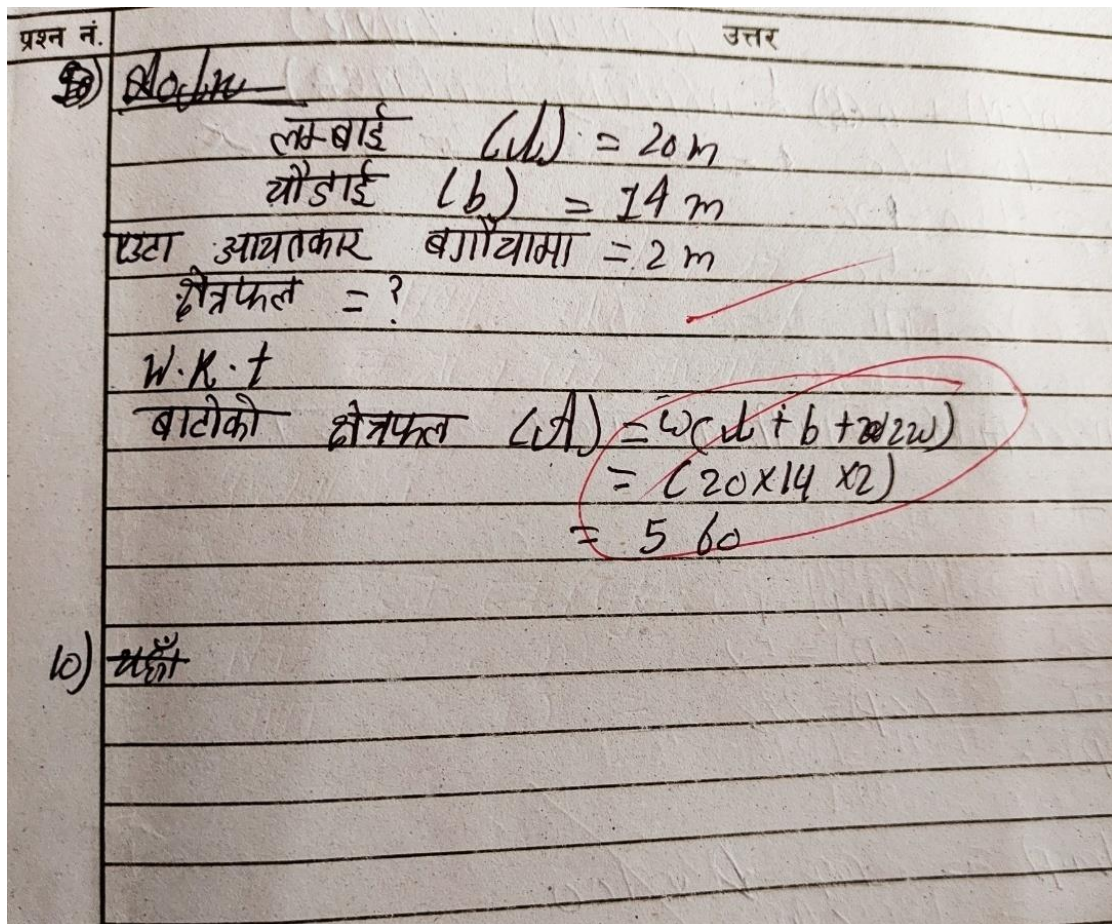 प्रश्न नं. उत्तर
लम्बाई (l) = 20 m
चौडाई (b) = 14 m
एउटा आयतकार बगौचामा = 2 m
क्षेत्रफल = ?
W.K.t
बाटोको क्षेत्रफल (A) = w(l + b + 2w)
= (20 x 14 x 2)
= 560
10) यहाँ